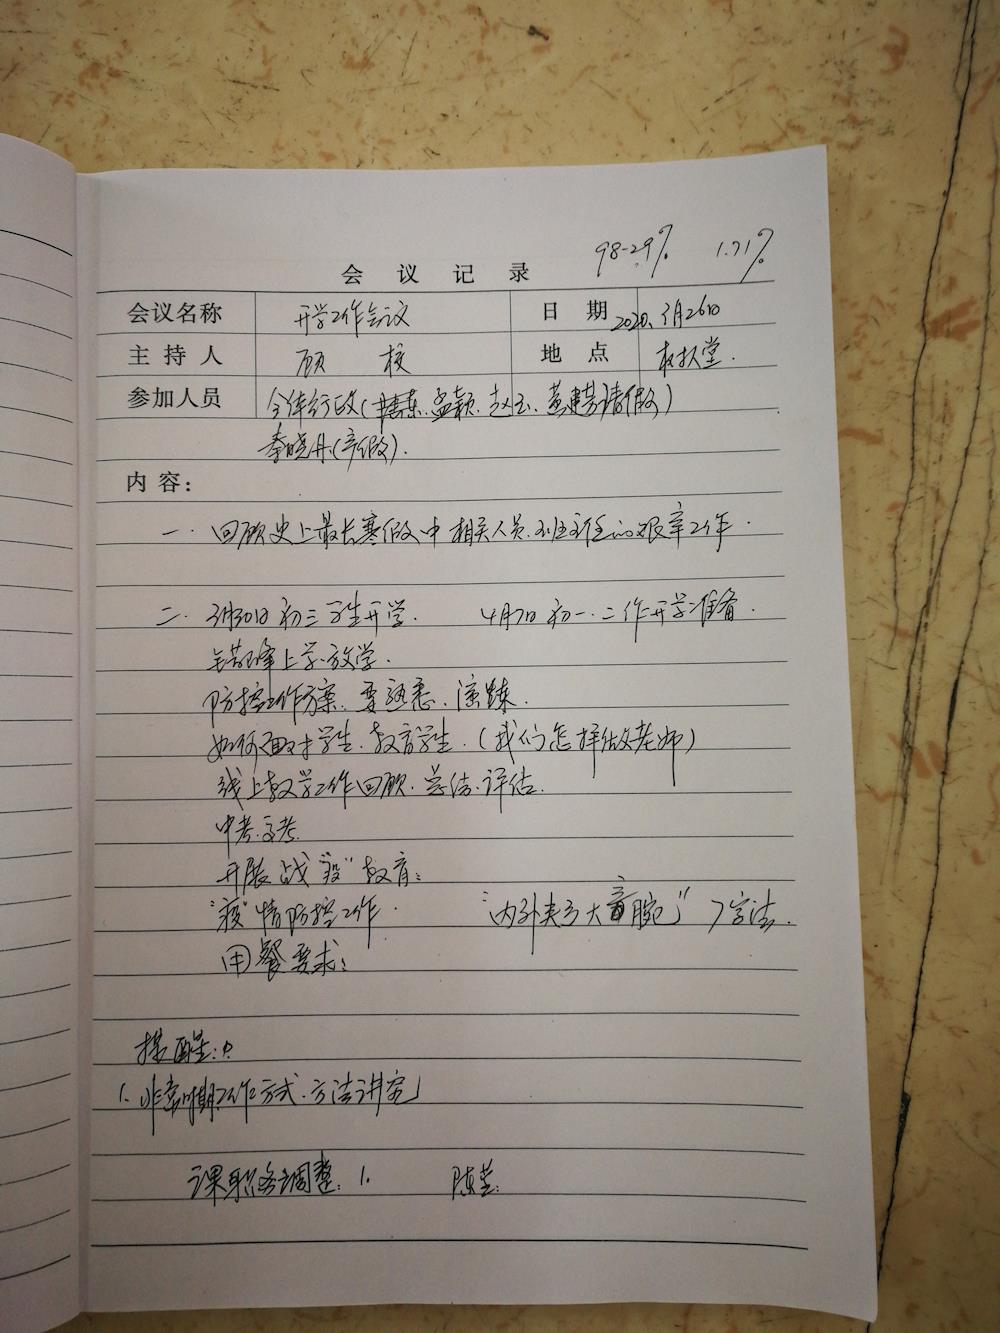 98.29% 1.71%
会议记录
会议名称 开学工作会议 日期 2020.3月26日
主持人 顾校 地点
参加人员 全体行政( 孟颖.赵玉.黄建芳请假)
李晓丹(产假).
内容:
一. 回顾史上最长寒假中相关人员.班主任的艰辛工作.
二. 3月30日初三学生开学. 4月7日初一.二作开学准备.
错峰上学.放学.
防控工作方案.要熟悉.演练.
如何面对学生.教育学生.(我们怎样做老师)
线上教学工作回顾.总结.评估.
中考.
开展战"疫"教育:
"疫"情防控工作. "内外夹弓大 腕" 7字法.
用餐要求:
提醒:
1.非常时期工作方式.方法讲究
课职务调整: 1. 陈芸: